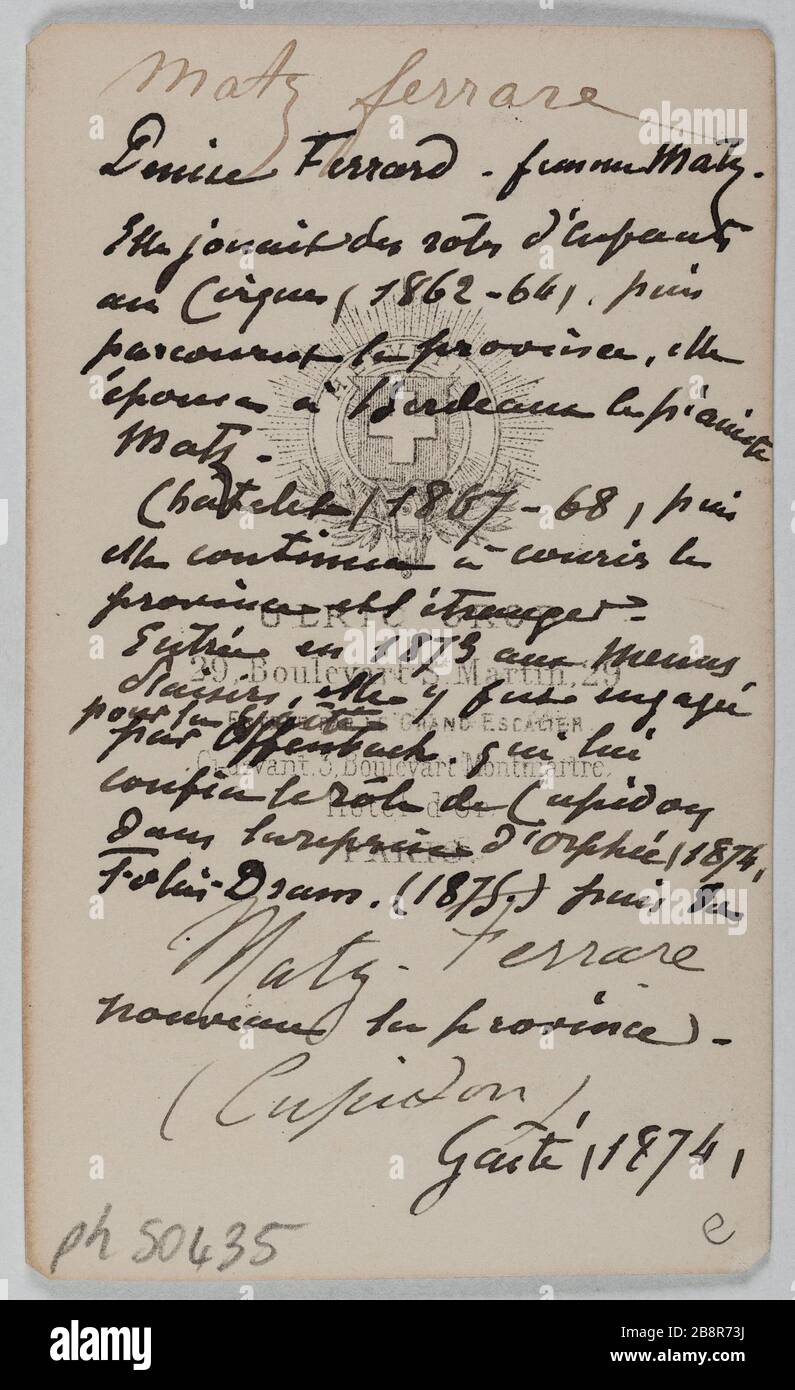 Matz ferrare
Denise Ferrard - femme Matz.
Elle jouait des rôles d'enfants
au Cirque (1862-64), puis
parcourut la province, elle
épousa à Bordeaux le pianiste
Matz.
Chatelet (1867-68) puis
elle continua à courir la
province et l'étranger.
Entrée en 1873 aux Menus
29, Boulevart S. Martin, 29
Plaisirs, elle y fut engagée
pour la Gaîté
GRAND ESCALIER
par Offenbach, qui lui
Ci-devant, 3, Boulevart Montmartre.
confia le rôle de Cupidon
Hôtel d'Or
dans la reprise d'Orphée (1874)
PARIS
Folies-Dram. (1875) puis de
Matz-Ferrare
nouveau la province.
(Cupidon)
Gaîté (1874)
ph 50435
e
alamy
Image ID: 2B8R73J
www.alamy.com